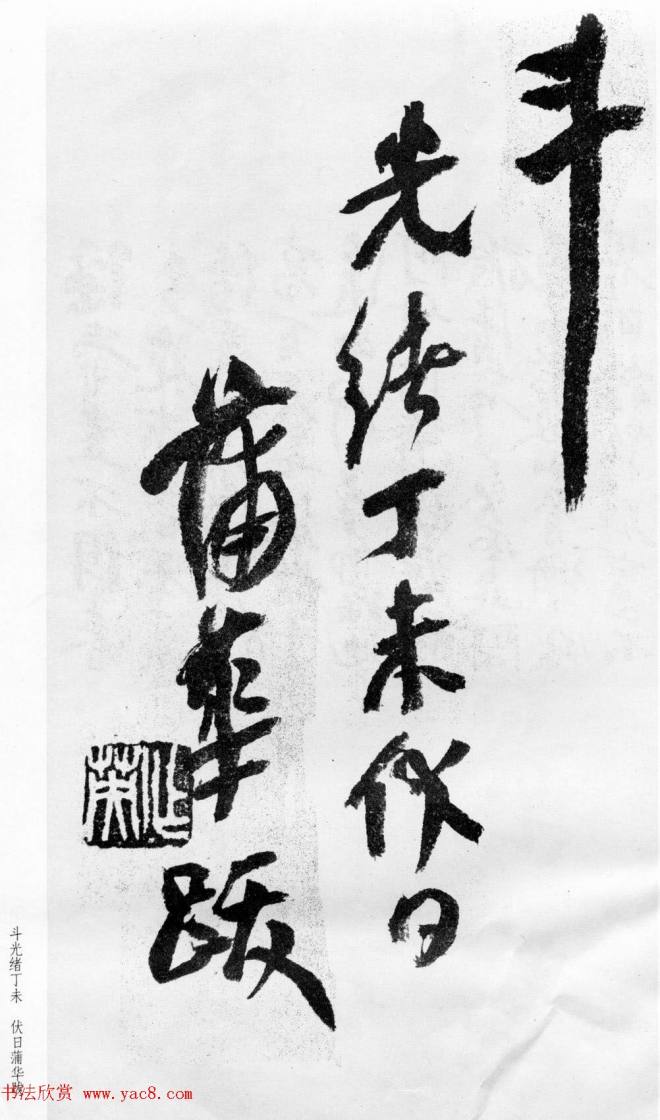 斗
光绪丁未伏日
蒲華跋
作英
斗光绪丁未 伏日蒲华跋
书法欣赏 www.yac8.com